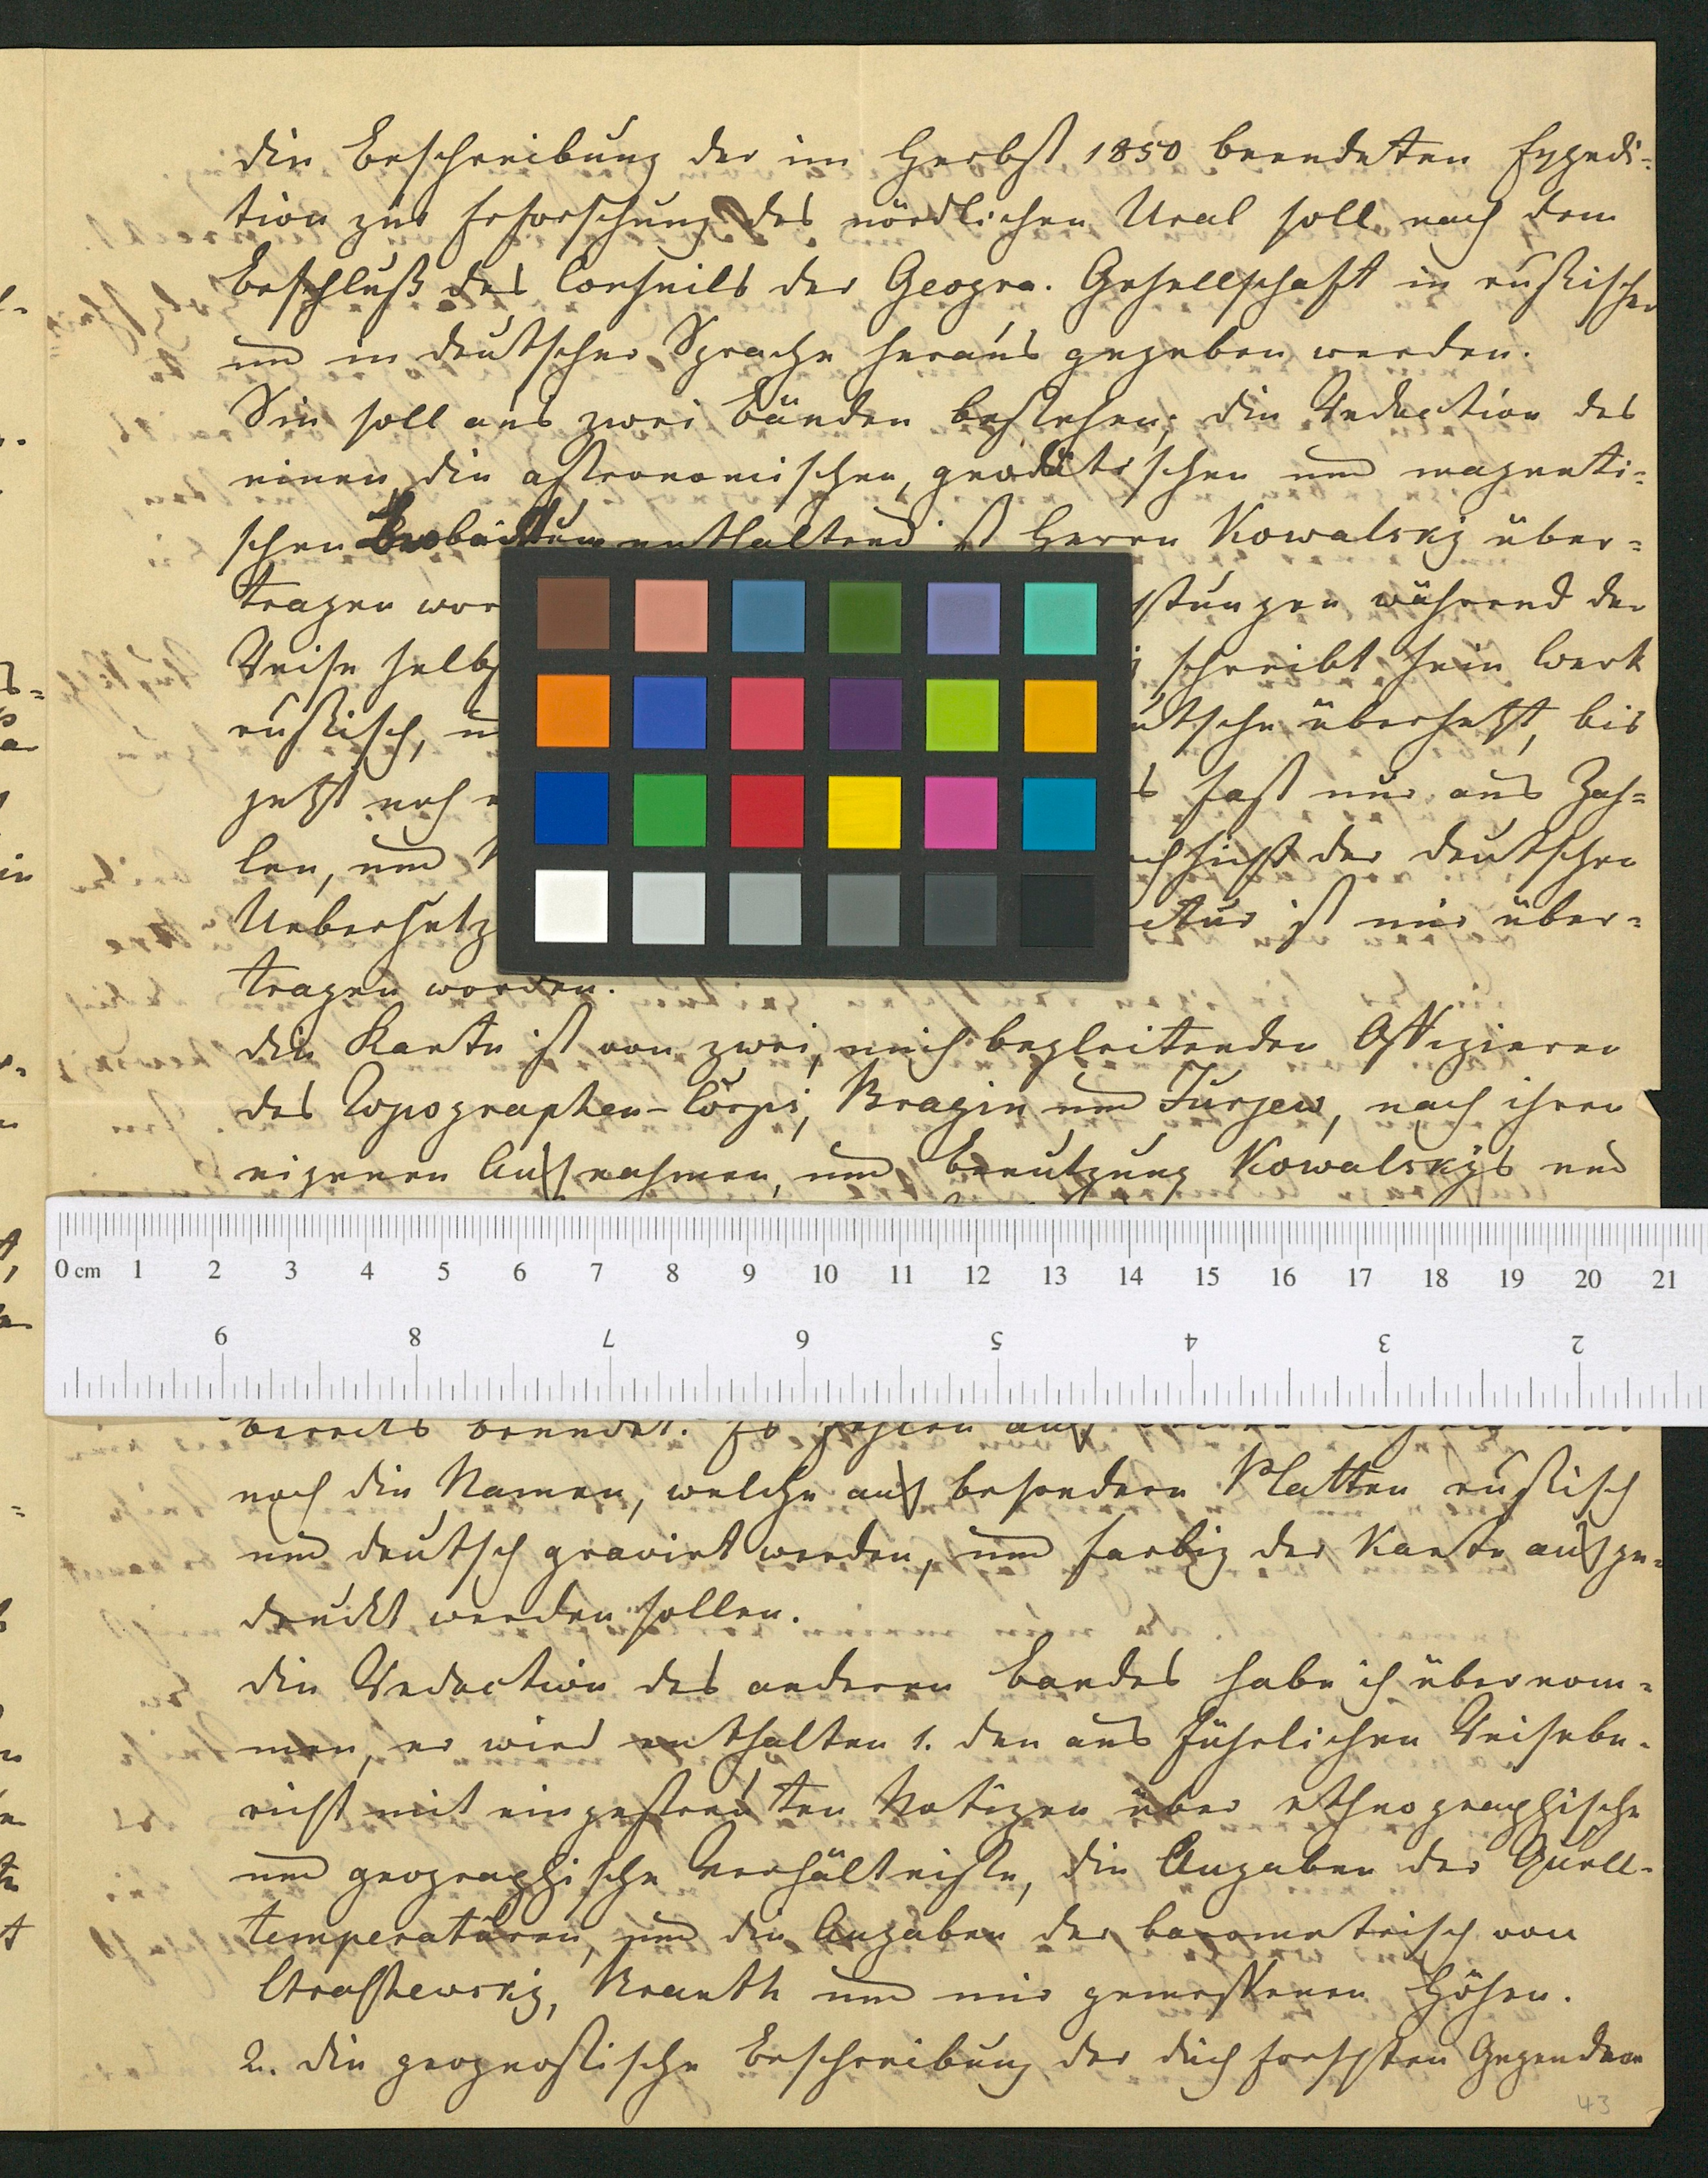 die Beschreibung der im Herbst 1850 beendeten Expedi-
tion zur Erforschung des nördlichen Ural soll nach dem
Beschluß des Conseils der Geogra. Gesellschaft in russischer
und in deutscher Sprache heraus gegeben werden.
Sie soll aus zwei Bänden bestehen; die Redaction des
einen, die astronomischen, geodätischen und magneti-
schen enthaltend ist Herrn Kowalsky über-
tragen wor stungen während der
Reise selbs schreibt sein Werk
russisch, u utsche übersetzt, bis
jetzt noch s fast nur aus Zah-
len, und der deutschen
Uebersetz ctur ist mir über-
tragen worden.
die Karte ist von zwei, mich begleitenden Offizieren
des Topographen-Corps, Bragin und Jurjew, nach ihren
eigenen Aufnahmen, und Benutzung Kowalskys und
0 cm 1 2 3 4 5 6 7 8 9 10 11 12 13 14 15 16 17 18 19 20 21
9 8 7 6 5 4 3 2
bereits beendet. Es fehlen auf
noch die Namen, welche auf besondern Platten russisch
und deutsch gravirt werden, und farbig der Karte aufge-
druckt werden sollen.
die Redaction des anderen Bandes habe ich übernom-
men, er wird enthalten 1. den aus führlichen Reisebe-
richt mit eingestreuten Notizen über ethnographische
und geographische Verhältnisse, die Angaben der Quell-
temperaturen, und die Angaben der barometrisch von
Strashewsky, Branth und mir gemessenen Höhen.
2. die geognostische Beschreibung der duch forschten Gegenden
43